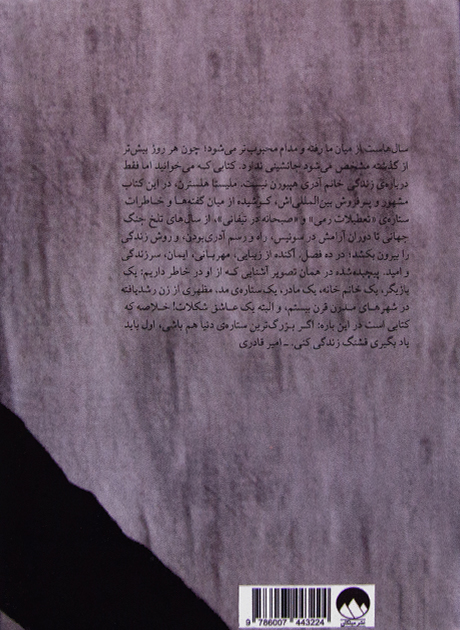 سال‌هاست از میان ما رفته و مدام محبوب‌تر می‌شود؛ چون هر روز بیش‌تر
از گذشته مشخص می‌شود جانشینی ندارد. کتابی که می‌خوانید اما فقط
درباره‌ی زندگی خانم آدری هیپورن نیست. ملیسا هلسترن، در این کتاب
مشهور و پرفروش بین‌المللی‌اش، کوشیده از میان گفته‌ها و خاطرات
ستاره‌ی «تعطیلات رمی» و «صبحانه در تیفانی»، از سال‌های تلخ جنگ
جهانی تا دوران آرامش در سوئیس، راه و رسم آدری‌بودن، و روش زندگی
را بیرون بکشد؛ در ده فصل. آکنده از زیبایی، مهربانی، ایمان، سرزندگی
و امید. پیچیده‌شده در همان تصویر آشنایی که از او در خاطر داریم: یک
بازیگر، یک خانم خانه، یک مادر، یک ستاره‌ی مد، مظهری از زن رشدیافته
در شهرهای مدرن قرن بیستم، و البته یک عاشق شکلات! خلاصه که
کتابی است در این باره: اگر بزرگ‌ترین ستاره‌ی دنیا هم باشی، اول باید
یاد بگیری قشنگ زندگی کنی. ـ امیر قادری
9 786007 443224